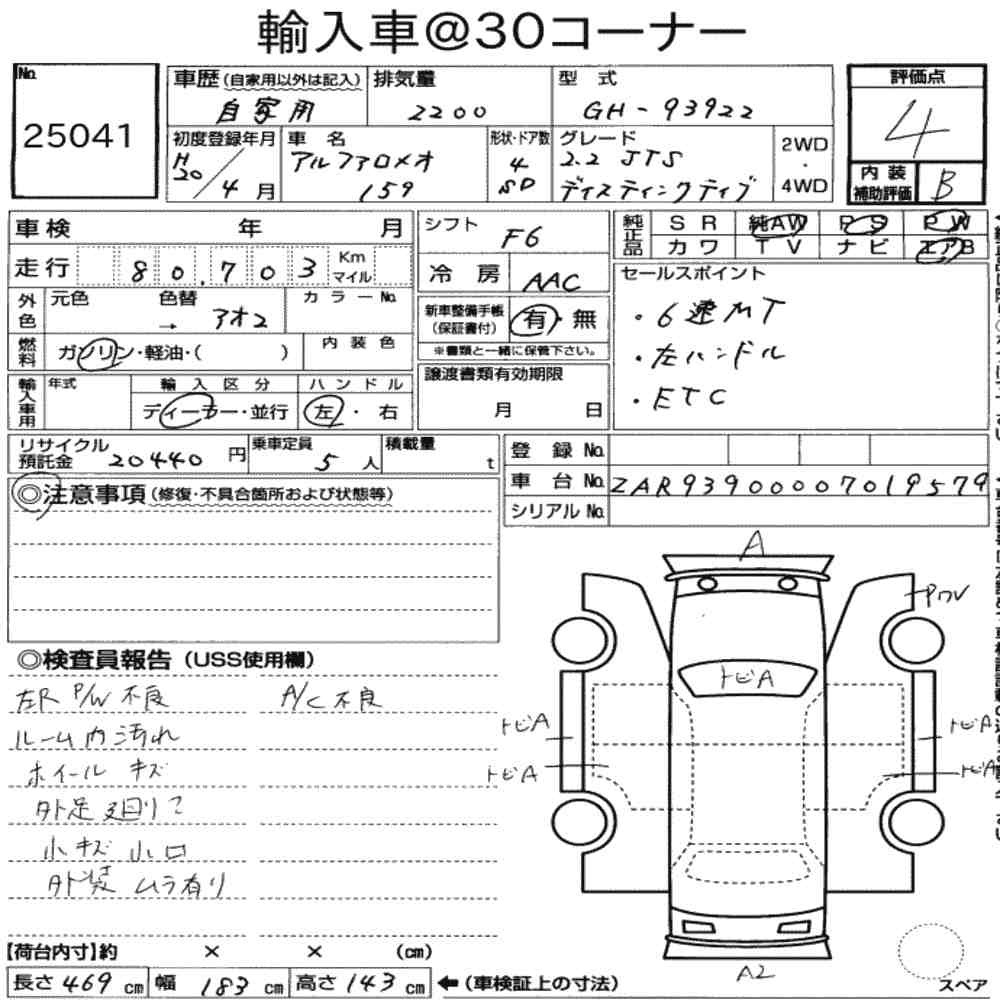 輸入車@30コーナー
No. 25041
車歴(自家用以外は記入) 自家用
排気量 2200
型式 GH-93922
評価点 4
初度登録年月 H20/4月
車名 アルファロメオ 159
形状・ドア数 4 SD
グレード 2.2 JTS ディスティンクティブ
2WD・4WD
内装補助評価 B
車検 年 月
シフト F6
純正品 SR 純AW PS PW
カワ TV ナビ エアB
走行 80.703 Km マイル
冷房 AAC
セールスポイント
・6速MT
・左ハンドル
・ETC
外色 元色 色替 → アオ2 カラーNo.
新車整備手帳(保証書付) 有・無
※書類と一緒に保管下さい。
燃料 ガソリン・軽油・( ) 内装色
輸入車用 年式 輸入区分 ハンドル
ディーラー・並行 左・右
譲渡書類有効期限
月 日
リサイクル預託金 20440円 乗車定員 5人 積載量 t
登録No.
車台No. ZAR93900007019579
シリアルNo.
◎注意事項(修復・不具合箇所および状態等)
◎検査員報告(USS使用欄)
左R P/W 不良 A/C不良
ルーム内汚れ
ホイール キズ
外足廻りコ
小キズ 小凹
外装 ムラ有り
A
PワV
トビA
トビA トビA
トビA トビA
A2
スペア
【荷台内寸】約 × × (cm)
長さ469cm 幅183cm 高さ143cm ←(車検証上の寸法)